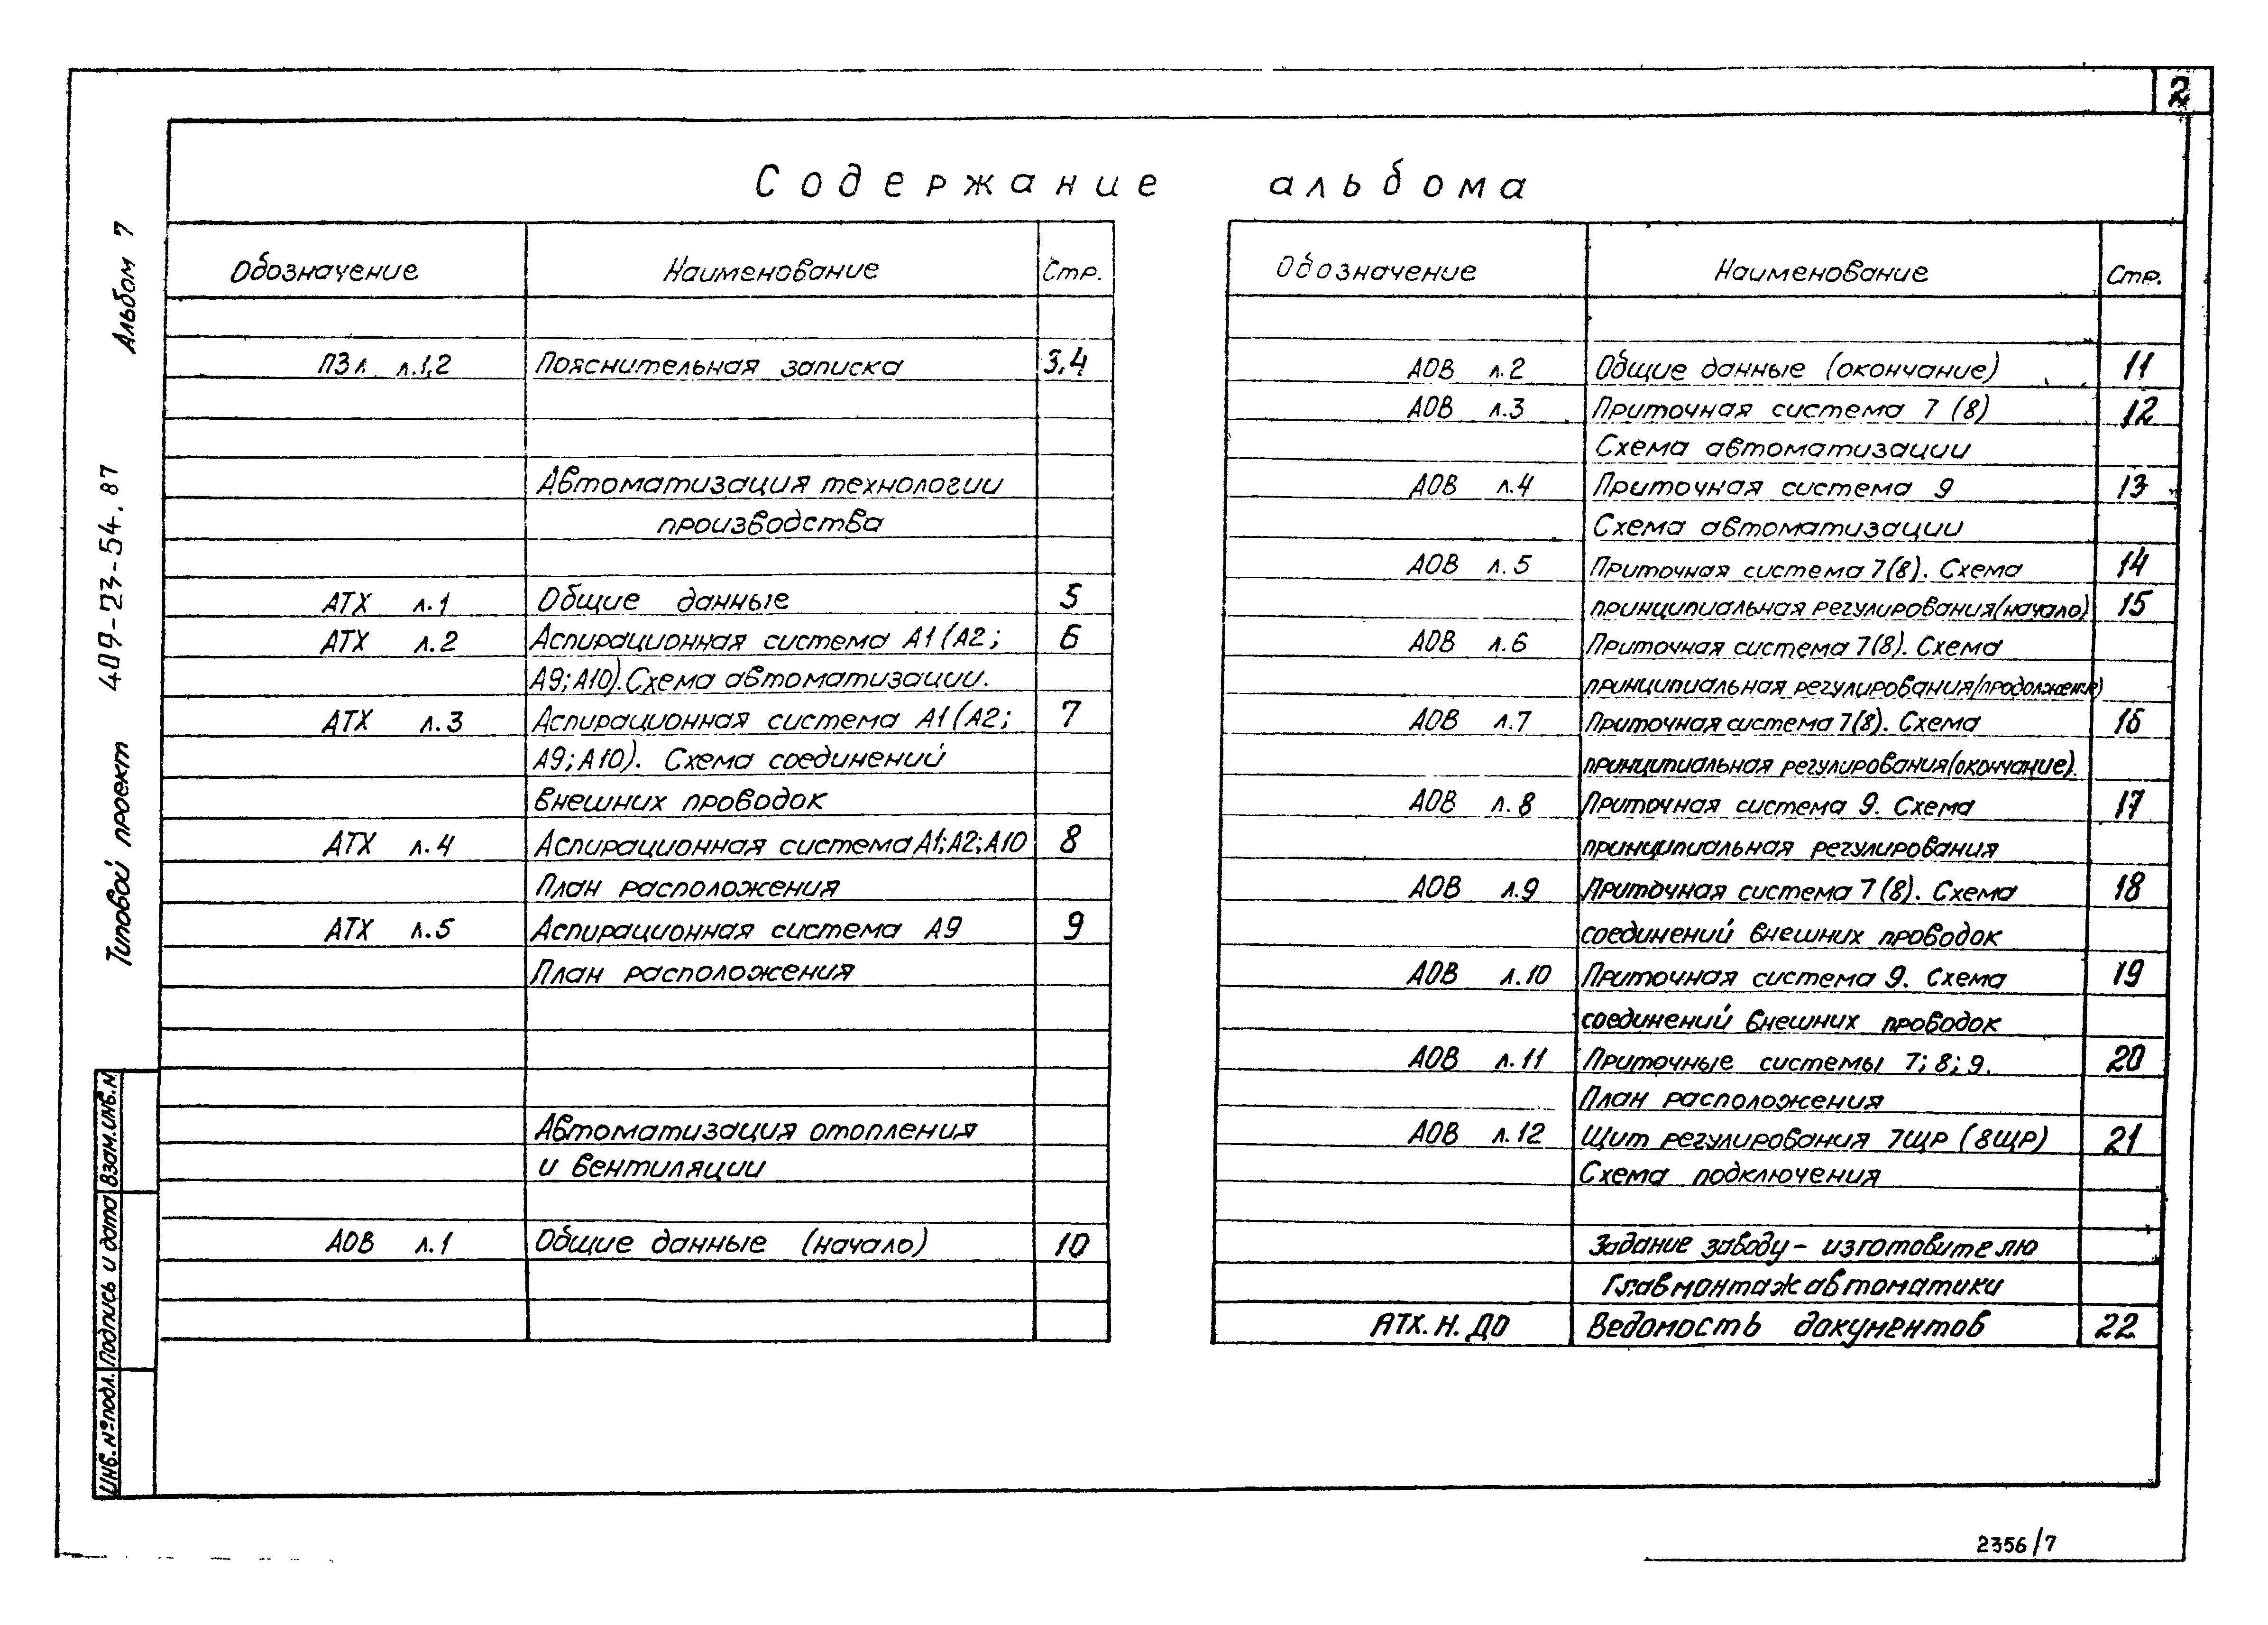 2
Содержание альбома
Альбом 7
Типовой проект 409-23-54.87
Обозначение Наименование Стр.
ПЗл л.1,2 Пояснительная записка 3,4
Автоматизация технологии
производства
АТХ л.1 Общие данные 5
АТХ л.2 Аспирационная система А1(А2; 6
А9;А10).Схема автоматизации.
АТХ л.3 Аспирационная система А1(А2; 7
А9;А10). Схема соединений
внешних проводок
АТХ л.4 Аспирационная система А1;А2;А10 8
План расположения
АТХ л.5 Аспирационная система А9 9
План расположения
Автоматизация отопления
и вентиляции
АОВ л.1 Общие данные (начало) 10
Обозначение Наименование Стр.
АОВ л.2 Общие данные (окончание) 11
АОВ л.3 Приточная система 7 (8) 12
Схема автоматизации
АОВ л.4 Приточная система 9 13
Схема автоматизации
АОВ л.5 Приточная система 7(8). Схема 14
принципиальная регулирования(начало) 15
АОВ л.6 Приточная система 7(8). Схема
принципиальная регулирования(продолжение)
АОВ л.7 Приточная система 7(8). Схема 16
принципиальная регулирования(окончание).
АОВ л.8 Приточная система 9. Схема 17
принципиальная регулирования
АОВ л.9 Приточная система 7(8). Схема 18
соединений внешних проводок
АОВ л.10 Приточная система 9. Схема 19
соединений внешних проводок
АОВ л.11 Приточные системы 7; 8; 9. 20
План расположения
АОВ л.12 Щит регулирования 7ЩР (8ЩР) 21
Схема подключения
Задание заводу- изготовителю
Главмонтажавтоматики
АТХ.Н.ДО Ведомость документов 22
Инв.№подл. Подпись и дата Взам.инв.№
2356/7